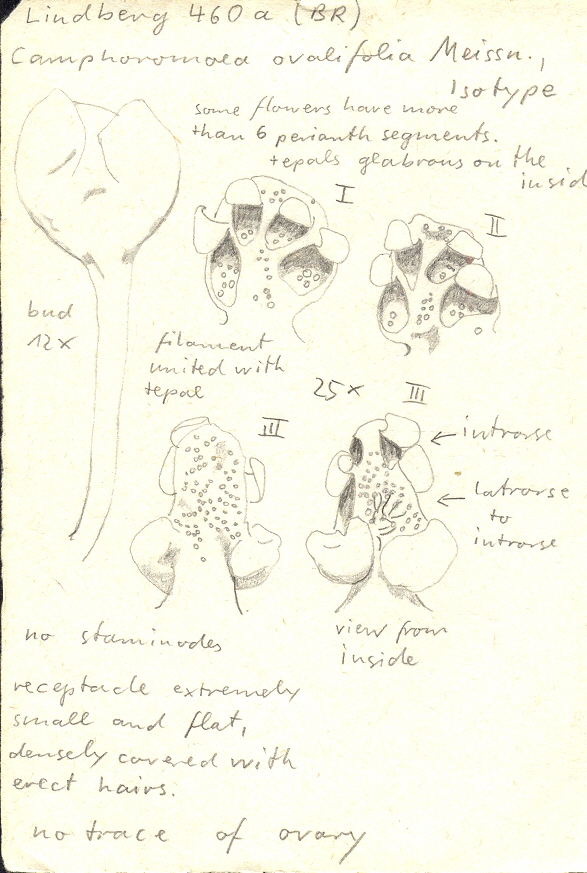 Lindberg 460a (BR)
Camphoromoea ovalifolia Meissn.,
Isotype
some flowers have more
than 6 perianth segments.
tepals glabrous on the
inside
I
II
bud
12x
filament
united with
tepal
25x
III
III
← introrse
← latrorse
to
introrse
no staminodes
view from
inside
receptacle extremely
small and flat,
densely covered with
erect hairs.
no trace of ovary